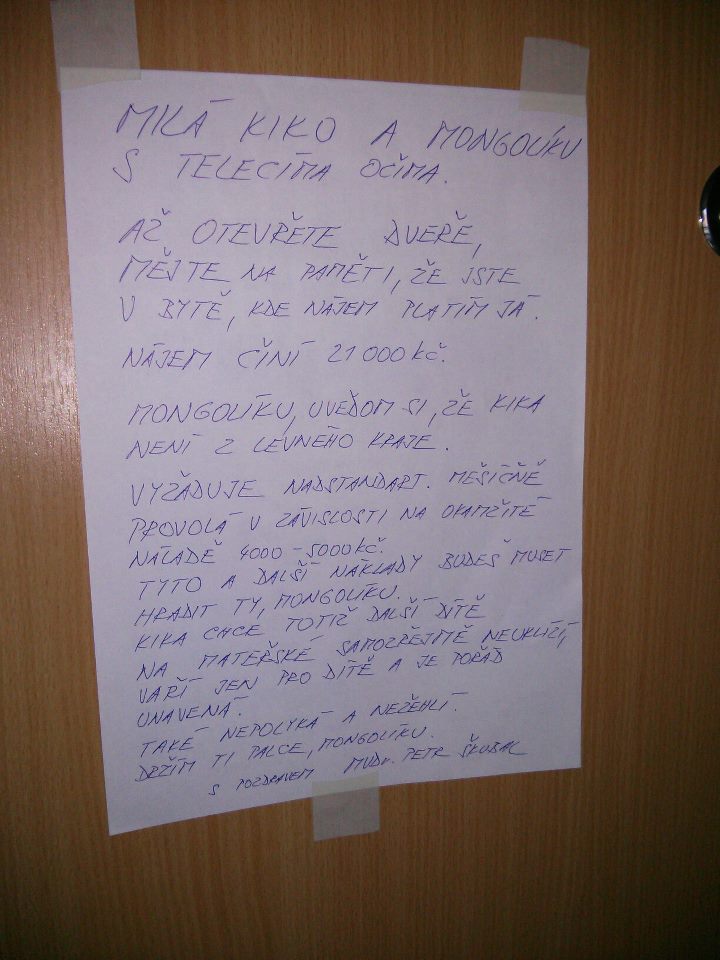 MILÁ KIKO A MONGOLÍKU
S TELECÍMA OČIMA.
AŽ OTEVŘETE DVEŘE,
MĚJTE NA PAMĚTI, ŽE JSTE
V BYTĚ, KDE NÁJEM PLATÍM JÁ.
NÁJEM ČINÍ 21 000 kč.
MONGOLÍKU, UVĚDOM SI, ŽE KIKA
NENÍ Z LEVNÉHO KRAJE.
VYŽADUJE NADSTANDART. MĚSÍČNĚ
PROVOLÁ V ZÁVISLOSTI NA OKAMŽITÉ
NÁLADĚ 4000 - 5000 kč.
TYTO A DALŠÍ NÁKLADY BUDEŠ MUSET
HRADIT TY, MONGOLÍKU.
KIKA CHCE TOTIŽ DALŠÍ DÍTĚ
NA MATEŘSKÉ SAMOZŘEJMĚ NEUKLÍZÍ,
VAŘÍ JEN PRO DÍTĚ A JE POŘÁD
UNAVENÁ.
TAKÉ NEPOLYKÁ A NEŽEHLÍ.
DRŽÍM TI PALCE, MONGOLÍKU.
S POZDRAVEM MUDr. PETR ŠKUBAL